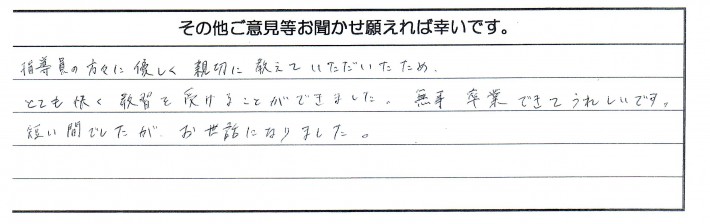 その他ご意見等お聞かせ願えれば幸いです。
指導員の方々に優しく親切に教えていただいたため、
とても快く教習を受けることができました。無事卒業できてうれしいです。
短い間でしたが、お世話になりました。